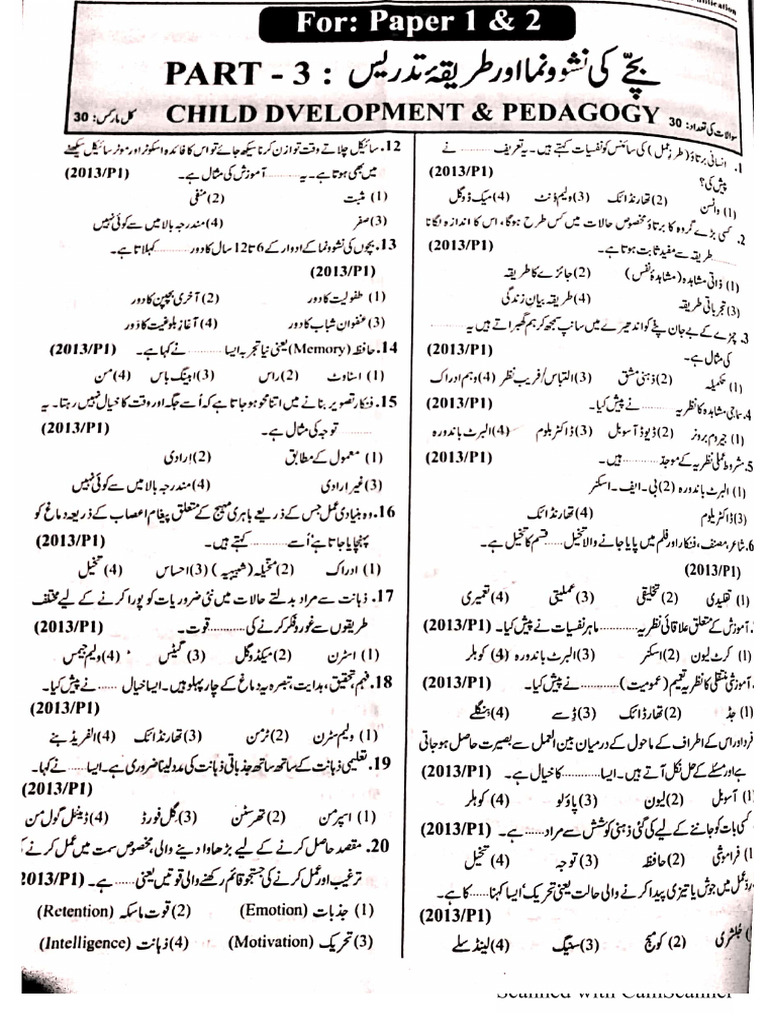 For: Paper 1 & 2
PART - 3 : بچّے کی نشوونما اور طریقۂ تدریس
سوالات کی تعداد: 30 CHILD DVELOPMENT & PEDAGOGY کل مارکس: 30
1. انسانی برتاؤ (طرزِ عمل) کی سائنس کو نفسیات کہتے ہیں۔ یہ تعریف ......... نے
پیش کی؟ (2013/P1)
(1) واٹسن (2) تھارنڈائک (3) ولیم ونٹ (4) میک ڈوگل
2. کسی بڑے گروہ کا برتاؤ مخصوص حالات میں کس طرح ہوگا، اس کا اندازہ لگانا
......... طریقہ سے مفید ثابت ہوتا ہے۔ (2013/P1)
(1) ذاتی مشاہدہ (مشاہدۂ نفس) (2) جائزے کا طریقہ
(3) تجرباتی طریقہ (4) طریقہ بیان زندگی
3. چمڑے کے بے جان پٹے کو اندھیرے میں سانپ سمجھ کر ہم گھبراتے ہیں یہ .........
کی مثال ہے۔ (2013/P1)
(1) تکمیلہ (2) ذہنی مشق (3) التباس/فریب نظر (4) وہم ادراک
4. سماجی مشاہدہ کا نظریہ ......... نے پیش کیا۔ (2013/P1)
(1) جیروم برونر (2) ڈیوڈ آسوبل (3) ڈاکٹر بلوم (4) البرٹ باندورہ
5. مشروط عملی نظریہ کے موجد ......... ہیں۔ (2013/P1)
(1) البرٹ باندورہ (2) بی۔ ایف۔ اسکنر
(3) ڈاکٹر بلوم (4) تھارنڈائک
6. شاعر، مصنف، فنکار اور فلم میں پایا جانے والا تخیل ......... قسم کا تخیل ہے۔
(2013/P1)
(1) تقلیدی (2) تخلیقی (3) عملیتی (4) تعمیری
آموزش کے متعلق علاقائی نظریہ ......... ماہر نفسیات نے پیش کیا۔ (2013/P1)
(1) کرٹ لیون (2) اسکنر (3) البرٹ باندورہ (4) کوہلر
آموزشی منتقلی کا نظریہ تعمیم (عمومیت) ......... نے پیش کیا۔ (2013/P1)
(1) جڈ (2) تھارڈائک (3) ڈسے (4) ہنگلے
فرد اور اس کے اطراف کے ماحول کے درمیان بین العمل سے بصیرت حاصل ہوجاتی
ہے اور مسئلے کے حل نکل آتے ہیں۔ ایسا ......... کا خیال ہے۔ (2013/P1)
(1) آسوبل (2) لیون (3) پاؤلو (4) کوہلر
کسی بات کو جاننے کے لیے کی گئی ذہنی کوشش سے مراد ...... ہے۔ (2013/P1)
(1) فراموشی (2) حافظہ (3) توجہ (4) تخیل
عمل میں جوش یا تیزی پیدا کرنے والی حالت یعنی تحریک' ایسا کہنا ...... کا ہے۔
(2013/P1)
(2) کومبج (3) سٹیگ (4) لینڈسلے
12. سائیکل چلاتے وقت توازن کرنا سیکھ جائے تو اس کا فائدہ اسکوٹر اور موٹر سائیکل سیکھنے
میں بھی ہوتا ہے۔ یہ ......... آموزش کی مثال ہے۔ (2013/P1)
(1) مثبت (2) منفی
(3) صفر (4) مندرجہ بالا میں سے کوئی نہیں
13. بچوں کی نشوونما کے ادوار کے 6 تا 12 سال کا دور ......... کہلاتا ہے۔
(2013/P1)
(1) طفولیت کا دور (2) آخری بچپن کا دور
(3) عنفوان شباب کا دور (4) آغاز بلوغیت کا دور
14. حافظہ (Memory) یعنی نیا تجربہ ایسا ......... نے کہا ہے۔ (2013/P1)
(1) اسٹاوٹ (2) راس (3) ایبنگ ہاس (4) من
15. فنکار تصویر بنانے میں اتنا محو ہوجاتا ہے کہ اُسے جگہ اور وقت کا خیال نہیں رہتا۔ یہ
......... توجہ کی مثال ہے۔ (2013/P1)
(1) معمول کے مطابق (2) اِرادی
(3) غیر ارادی (4) مندرجہ بالا میں سے کوئی نہیں
16. وہ بنیادی عمل جس کے ذریعے باہری مہیج کے متعلق پیغام اعصاب کے ذریعہ دماغ کو
پہنچایا جاتا ہے اُسے ......... کہتے ہیں۔ (2013/P1)
(1) ادراک (2) متخیلہ (شبیہہ) (3) احساس (4) تخیل
17. ذہانت سے مراد بدلتے حالات میں نئی ضروریات کو پورا کرنے کے لیے مختلف
طریقوں سے غور و فکر کرنے کی ......... قوت۔ (2013/P1)
(1) اسٹرن (2) میکڈوگل (3) گیٹس (4) ولیم جیمس
18. فہم، تحقیق، ہدایت، تبصرہ یہ دماغ کے چار پہلو ہیں۔ ایسا خیال ...... نے پیش کیا۔
(2013/P1)
(1) ولیم سٹرن (2) ٹرمن (3) تھارنڈائک (4) الفریڈ بنے
19. تعلیمی ذہانت کے ساتھ ساتھ جذباتی ذہانت کی مدد لینا ضروری ہے۔ ایسا ...... نے کہا۔
(2013/P1)
(1) اسپرمن (2) تھرسٹن (3) گل فورڈ (4) ڈینیل گول من
20. مقصد حاصل کرنے کے لیے بڑھاوا دینے والی، مخصوص سمت میں عمل کرنے کے
ترغیب اور عمل کرنے کی جستجو قائم رکھنے والی قوتیں یعنی ...... ہے۔ (2013/P1)
(1) جذبات (Emotion) (2) قوت ماسکہ (Retention)
(3) تحریک (Motivation) (4) ذہانت (Intelligence)
Scanned with CamScanner